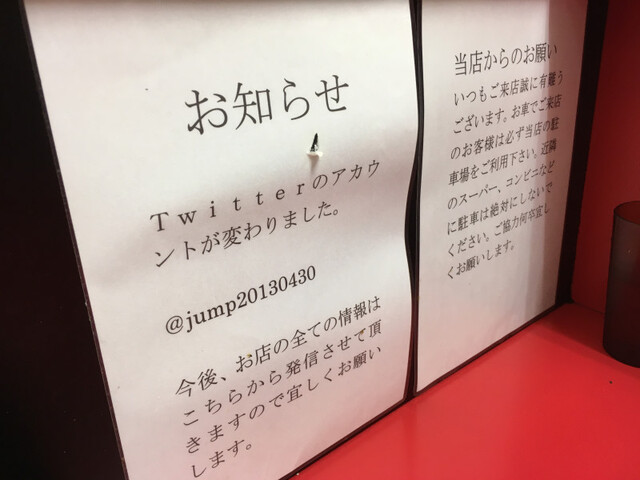 お知らせ
Ｔｗｉｔｔｅｒのアカウ
ントが変わりました。
@jump20130430
今後、お店の全ての情報は
こちらから発信させて頂
きますので宜しくお願い
します。
当店からのお願い
いつもご来店誠に有難う
ございます。お車でご来店
のお客様は必ず当店の駐
車場をご利用下さい。近隣
のスーパー、コンビニなど
に駐車は絶対にしないで
ください。ご協力何卒宜し
くお願いします。